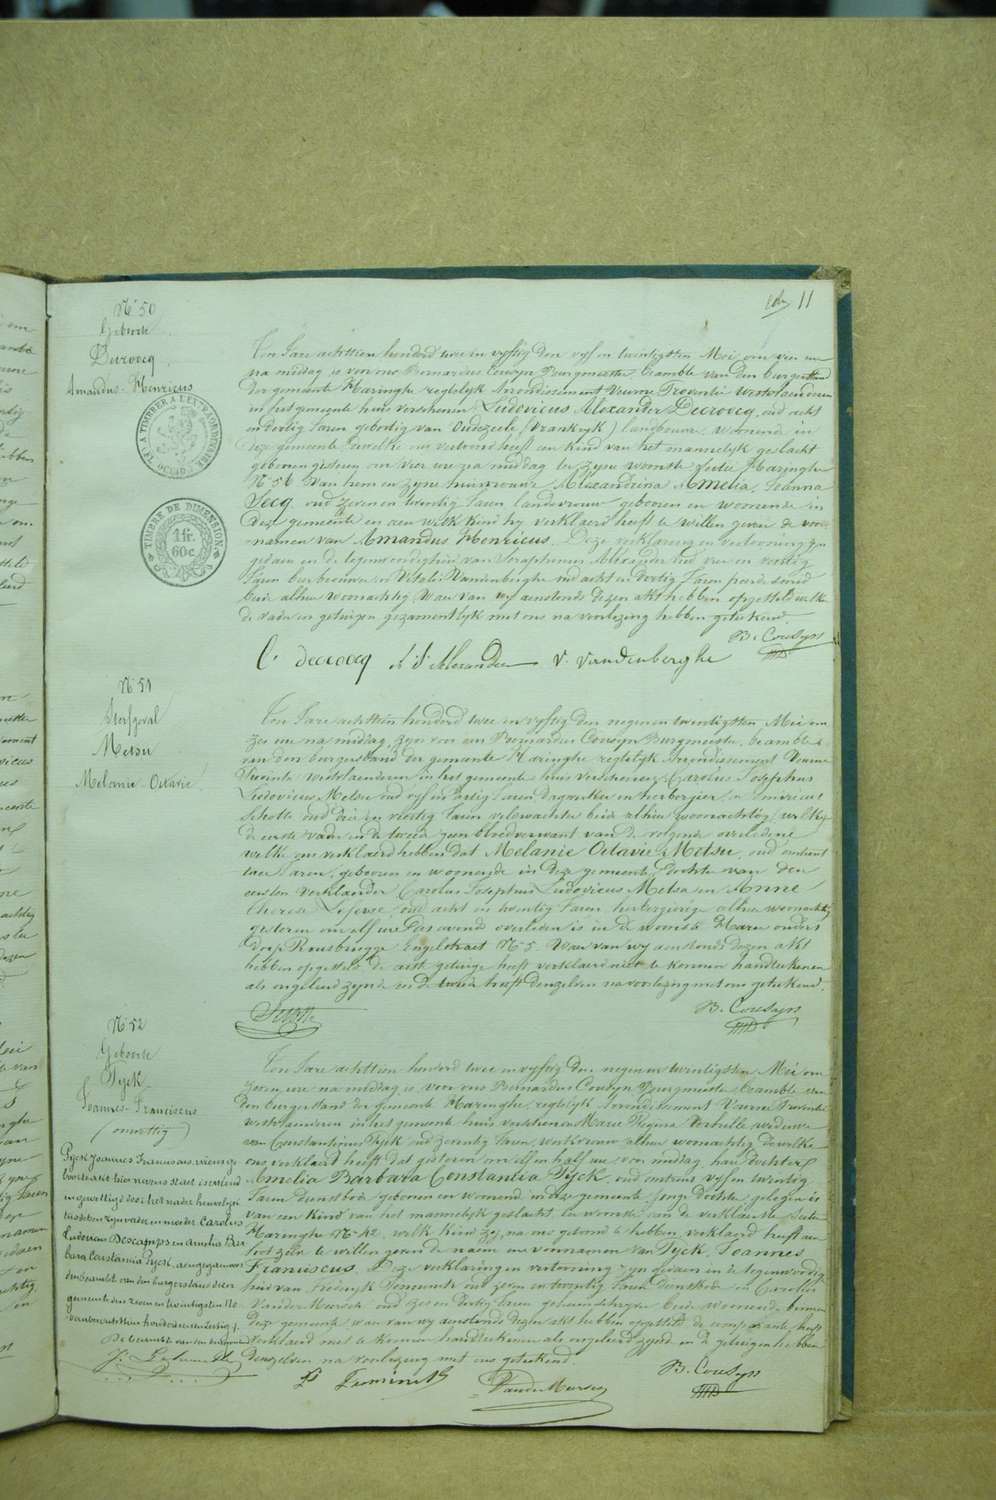 11
N° 50
Geboorte
Decrocq
Amandus-Henricus
TRE A TIMBRER A L'EXTRAORDINAIRE
OCCID
TIMBRE DE DIMENSION
1 fr.
60 c.
Ten Jare achttien honderd twee en vyftig den vyf en twintigsten Mei om vier ure
na middag is voor ons Bernardus Cousyn Burgmeester Beambte van den burgerstand
der gemeente Haringhe regtelyk Arrondissement Veurne Provintie Westvlaenderen
in het gemeente huis verschenen Ludovicus Alexander Decrocq, oud acht
en dertig Jaren geboortig van Oudezeele (Vrankryk) landbouwer woonende in
deze gemeente dewelke ons vertoond heeft een kind van het mannelyk geslacht
geboren gisteren om vier ure na middag ten zyne woonste Sectie Haringhe
N° 56 van hem en zyne huisvrouw Alexandrina Amelia Joanna
Secq oud zeven en twintig Jaren landvrouw geboren en woonende in
deze gemeente en aen welk kind hy verklaerd heeft te willen geven de voor
namen van Amandus Henricus. Deze verklaring en vertooning zyn
gedaen in de tegenwoordigheid van Seraphinus Alexander oud
Jaren bierbrouwer en Vitalis Vandenberghe oud acht en dertig Jaren peerdesmid
beide alhier woonachtig, Waer van wy aenstonds dezen akt hebben opgesteld welke
de vader en getuigen gezamentlyk met ons na voorlezing hebben geteekend.
B. Cousyn
L. decrocq S. Alexander V. Vandenberghe
N° 51
Sterfgeval
Metsu
Melanie Octavie
Ten Jare achttien honderd twee en vyftig den negen en twintigsten Mei om
zes ure na middag, zyn voor ons Bernardus Cousyn Burgmeester, beambte
van den burgerstand der gemeente Haringhe regtelyk Arrondissement Veurne
Provintie Westvlaenderen in het gemeente huis verschenen Carolus Josephus
Ludovicus Metsu oud vyf en dertig Jaren dagwerker en herbergier, en
Schotte oud drie en veertig Jaren veldwachter beide alhier woonachtig, welke
de eerste vader en de tweede geen bloedverwant van de volgende overledene
welke ons verklaerd hebben dat Melanie Octavie Metsu, oud omtrent
twee Jaren, geboren en woonende in deze gemeente, dochter van den
eersten verklaerder Carolus Josephus Ludovicus Metsu en Anne
Theresia Lefevre, oud acht en twintig Jaren herbergierige alhier woonachtig
gisteren om elf ure des avonds overleden is in de woonste Haren ouders
dorp Rousbrugge Engelstraet N° 5 Waer van wy aenstonds dezen akt
hebben opgesteld, de eerste getuige heeft verklaerd niet te konnen handteekenen
als ongeleerd zynde en de tweede heeft denzelven na voorlezing met ons geteekend.
Schotte B. Cousyn
N° 52
Geboorte
Tyck
Joannes-Franciscus
(onwettig)
Tyck Joannes Franciscus, wiens ge
boorteakt hier nevens staet is erkend
en gewettigd door het nader huwelyk
tusschen zyn vader en moeder Carolus
Ludovicus Descamps en Amelia Bar
bara Constantia Tyck, aengegaen voor
den beambte van den burgerstand dezer
gemeente den zeven en twintigsten No
vember achttien honderd
De beambte van den burgerstand
Ten Jare achttien honderd twee en vyftig den negen en twintigsten Mei om
zeven ure na middag is voor ons Bernardus Cousyn Burgmeester Beambte van
den burgerstand der gemeente Haringhe, regtelyk Arrondissement Veurne Provintie
Westvlaenderen in het gemeente huis verschenen Marie Regina Verhulle weduwe
van Constantinus Tyck oud zeventig Jaren werkvrouw alhier woonachtig dewelke
ons verklaerd heeft dat gisteren om elf en half ure voor middag haer dochter
Amelia Barbara Constantia Tyck, oud omtrent vyf en twintig
Jaren dienstbode geboren en woonend in deze gemeente, Jonge Dochter gelegen is
van een kind van het mannelyk geslacht, ter woonste van de verklaerster Sectie
Haringhe N° 42, welk kind zy, na ons getoond te hebben, verklaerd heeft aen
het zelve te willen geven de naem en voornamen van Tyck, Joannes
Franciscus. Deze verklaring en vertooning zyn gedaen in de tegenwoordig
heid van Frederyk oud zeven en twintig Jaren dienstbode en Carolus
Vander Meersch oud zes en dertig Jaren geheimschryver beide woonende binnen
deze gemeente waer van wy aenstonds dezen akt hebben opgesteld, de comparante heeft
verklaerd niet te konnen handteekenen als ongeleerd zynde en de getuigen hebben
denzelven na voorlezing met ons geteekend.
B. Cousyn